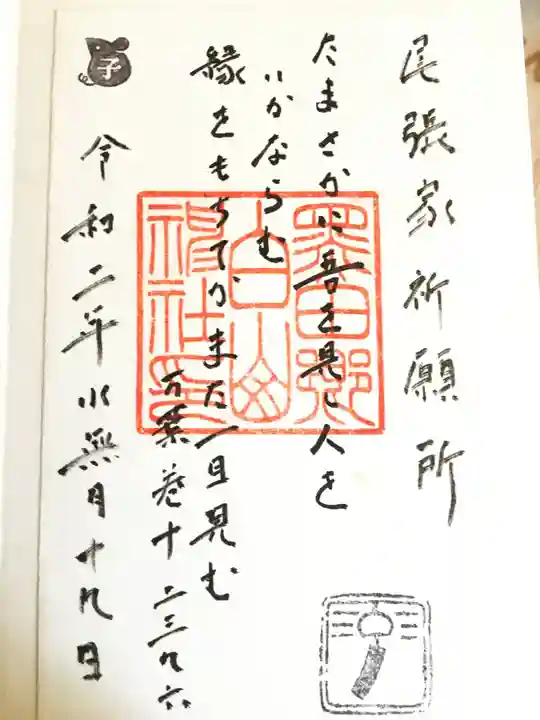 尾張家祈願所
たまさかに吾を見し人を
いかならむ
縁をもちてかまた一目見む
万葉巻十二三九六
令和二年水無月十九日
子
白山
神社印